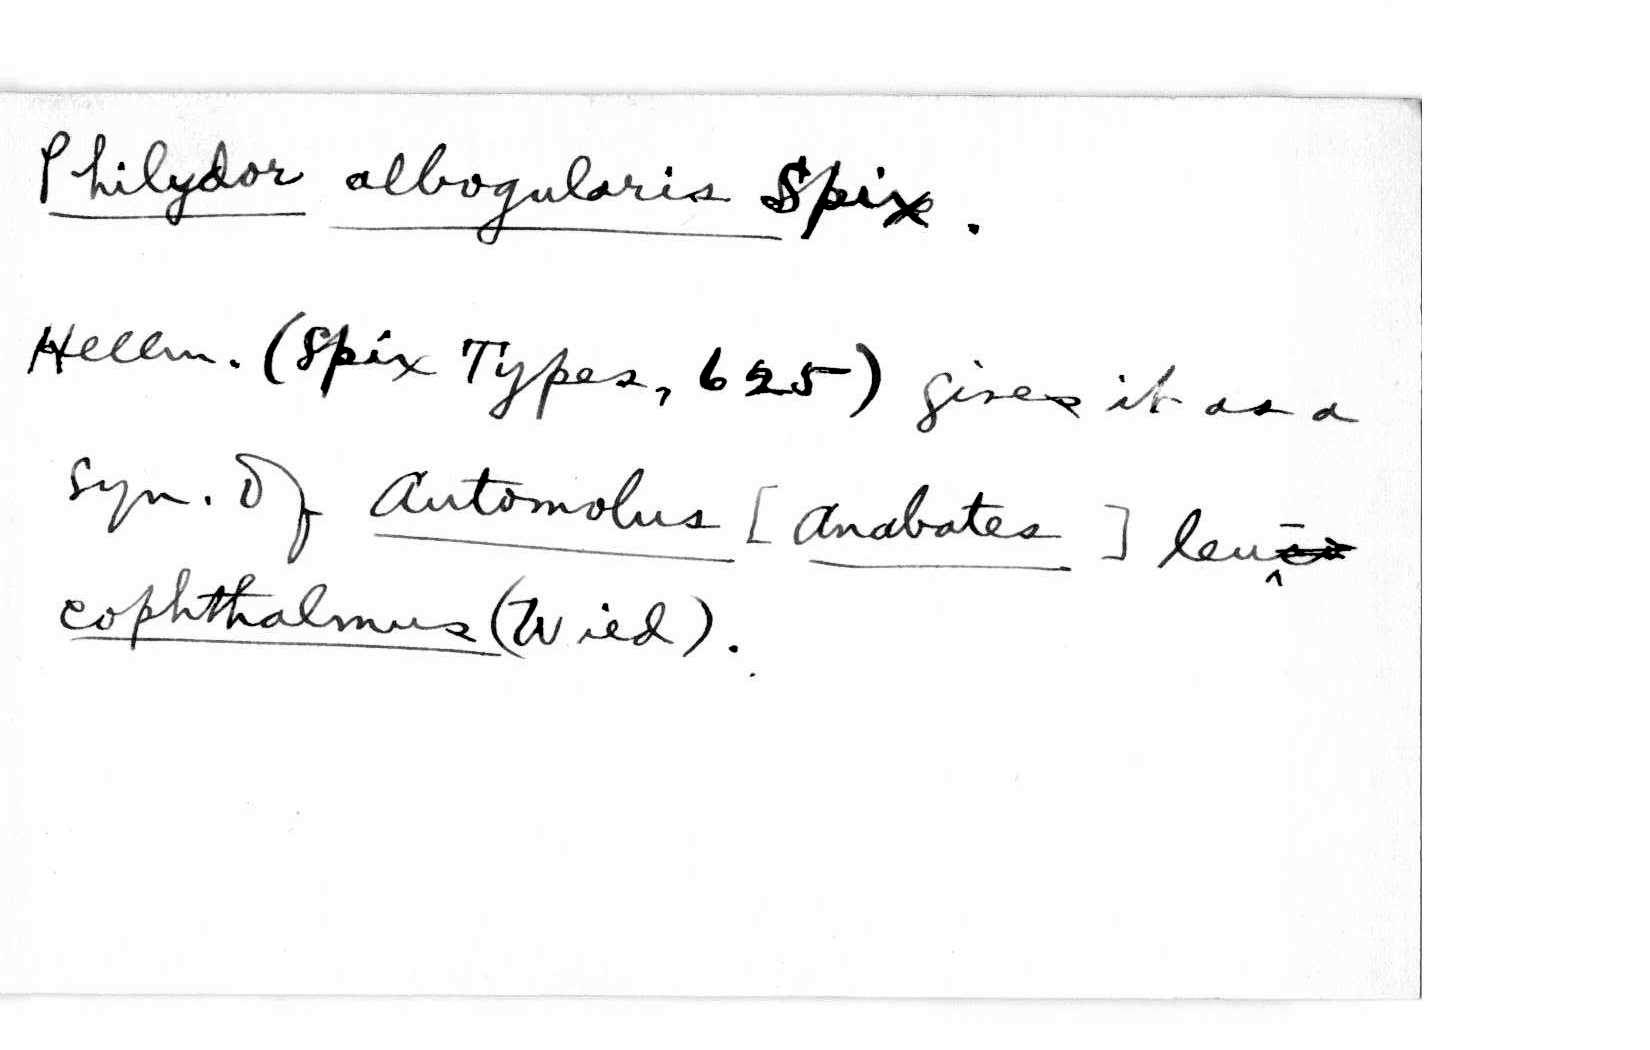 Philydor albogularis Spix.
Hellm. (Spix Types, 625) gives it as a
syn. Of Automolus [Anabates] leu-
cophthalmus (Wied).